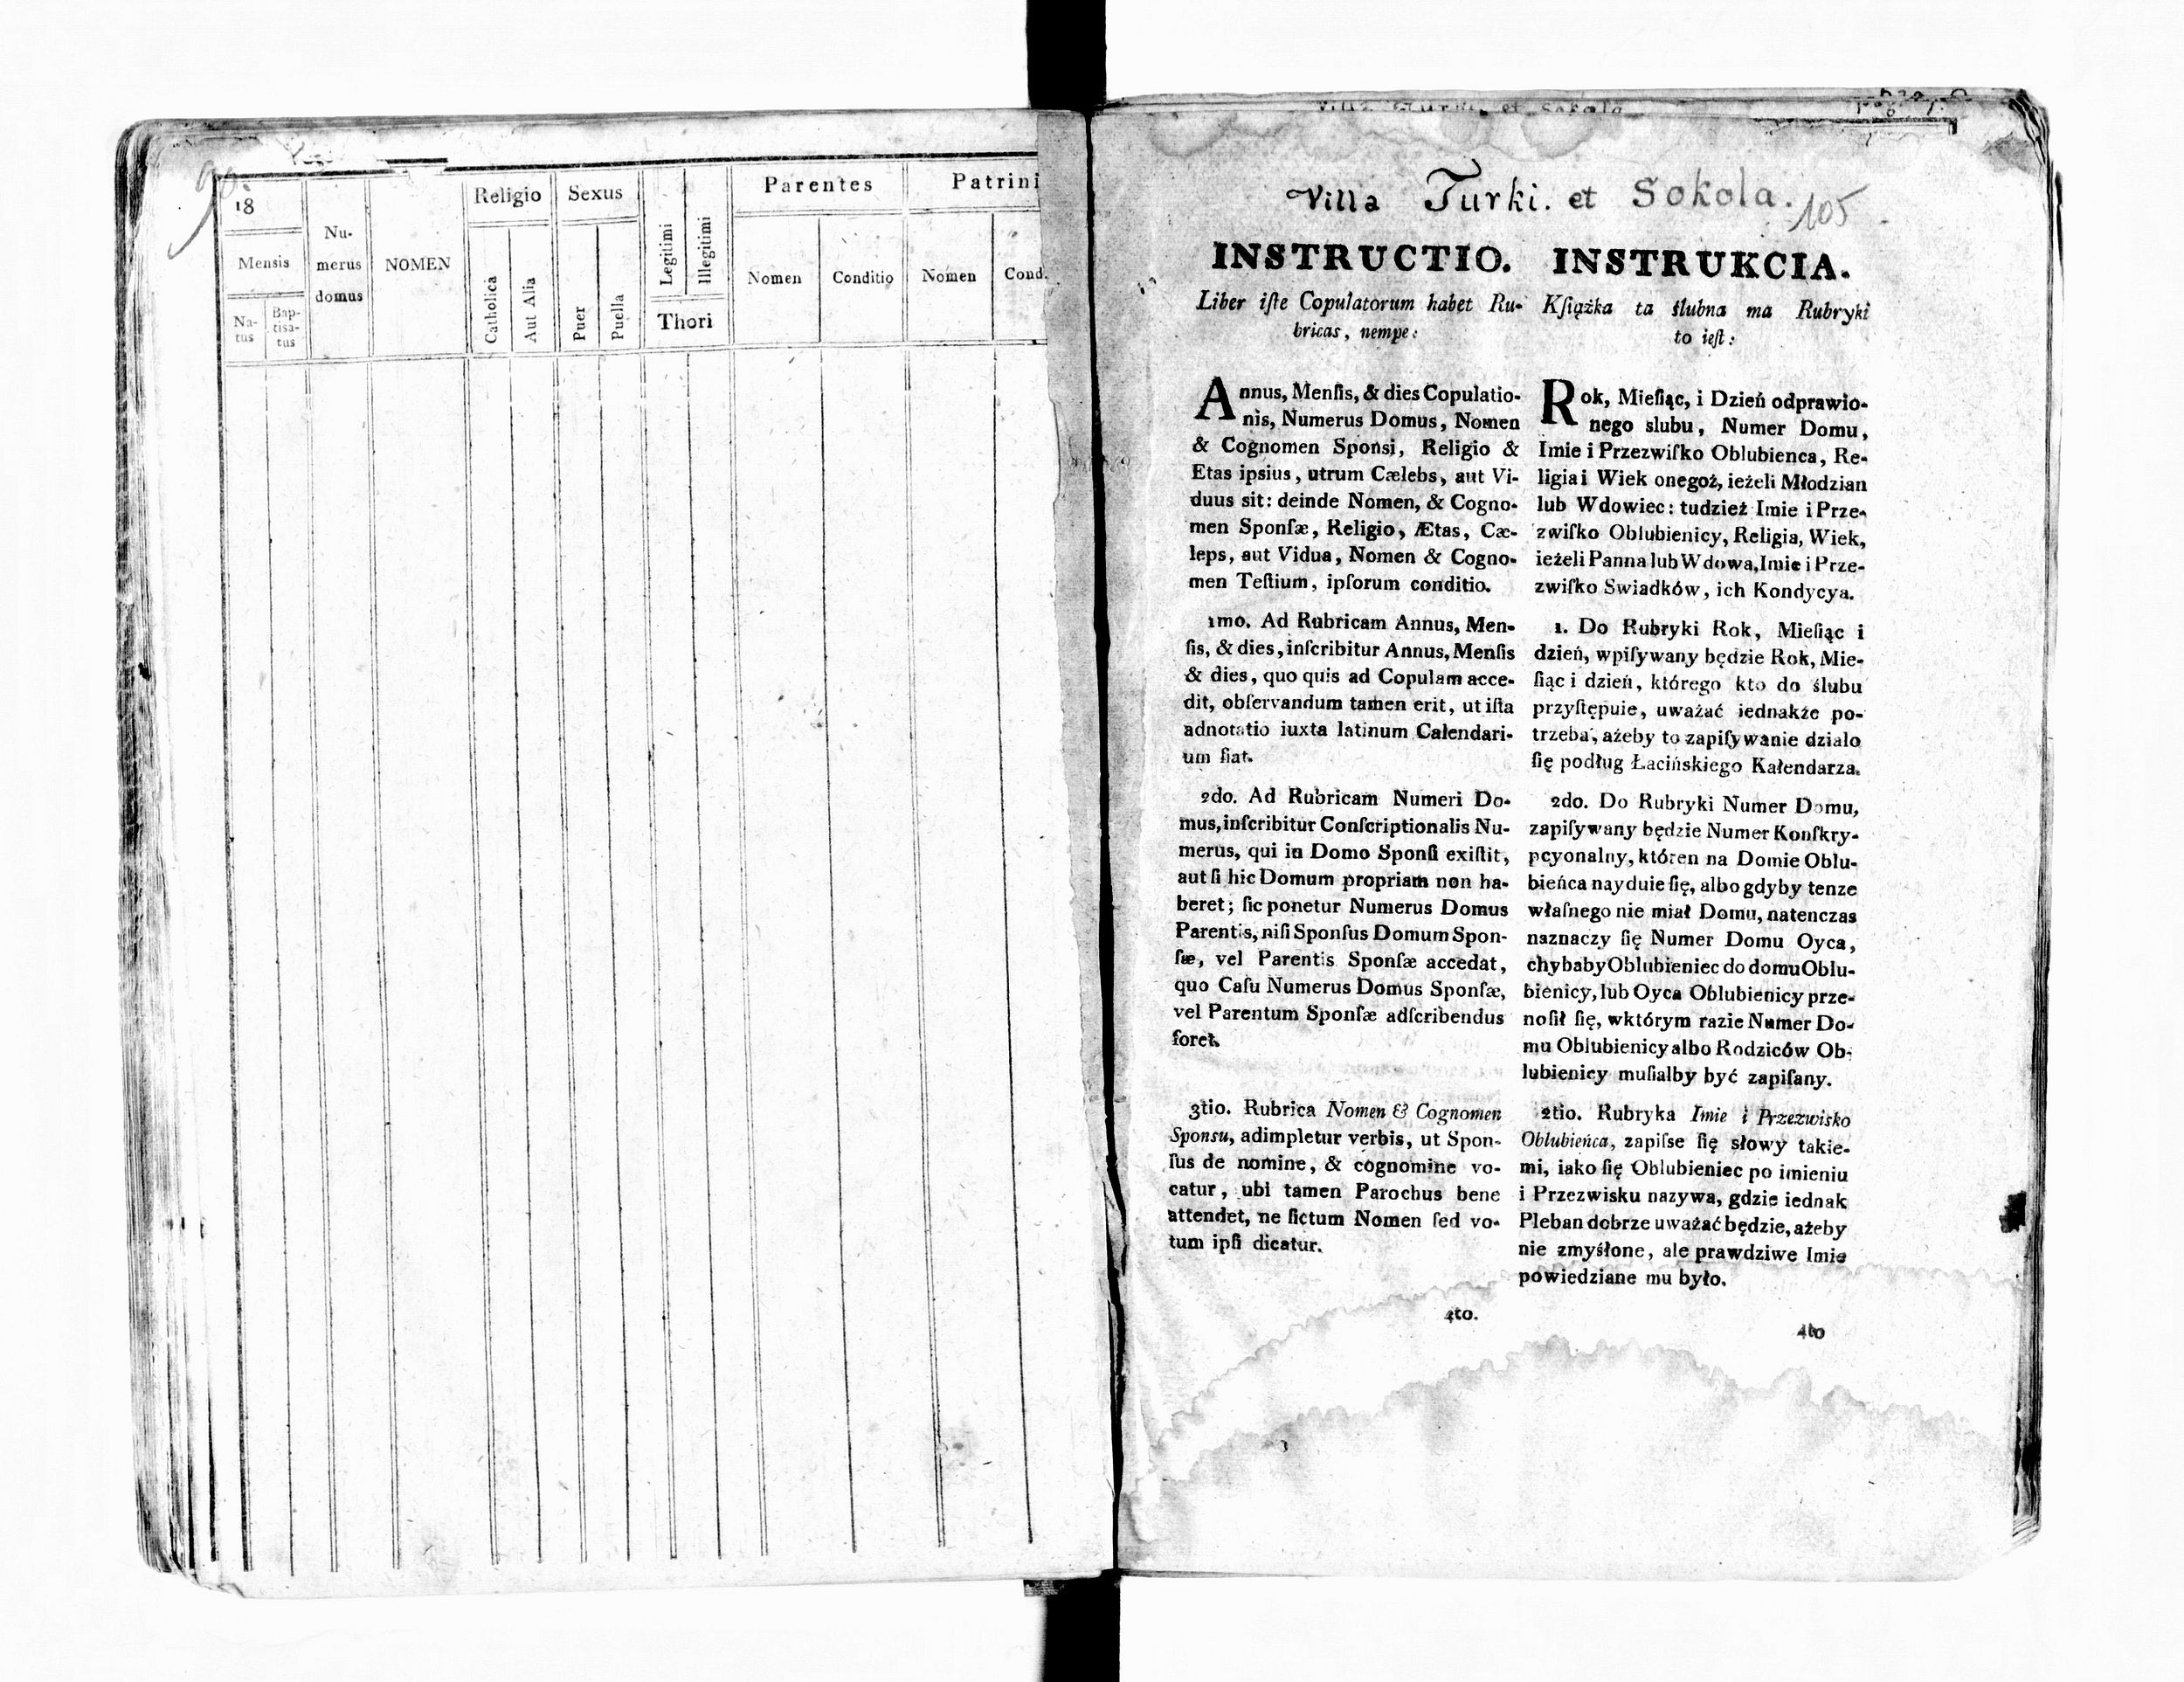 18
Mensis
Na-
tus
Bap-
tisa-
tus
Nu-
merus
domus
NOMEN
Religio
Catholica
Aut Alia
Sexus
Puer
Puella
Legitimi
Illegitimi
Thori
Parentes
Nomen
Conditio
Patrini
Nomen
Cond.
Villa Turki et Sokola
Villa Turki. et Sokola.
105
INSTRUCTIO.
Liber iſte Copulatorum habet Ru-
bricas, nempe:
Annus, Menſis, & dies Copulatio-
nis, Numerus Domus, Nomen
& Cognomen Sponsi, Religio &
Etas ipsius, utrum Cælebs, aut Vi-
duus sit: deinde Nomen, & Cogno-
men Sponſæ, Religio, Ætas, Cæ-
leps, aut Vidua, Nomen & Cogno-
men Teſtium, ipſorum conditio.
1mo. Ad Rubricam Annus, Men-
ſis, & dies, inſcribitur Annus, Menſis
& dies, quo quis ad Copulam acce-
dit, obſervandum tamen erit, ut iſta
adnotatio iuxta latinum Calendari-
um fiat.
2do. Ad Rubricam Numeri Do-
mus, inſcribitur Conſcriptionalis Nu-
merus, qui in Domo Sponſi exiſtit,
aut ſi hic Domum propriam non ha-
beret; ſic ponetur Numerus Domus
Parentis, niſi Sponſus Domum Spon-
ſæ, vel Parentis Sponſæ accedat,
quo Caſu Numerus Domus Sponſæ,
vel Parentum Sponſæ adſcribendus
foret.
3tio. Rubrica Nomen & Cognomen
Sponsu, adimpletur verbis, ut Spon-
ſus de nomine, & cognomine vo-
catur, ubi tamen Parochus bene
attendet, ne fictum Nomen ſed vo-
tum ipſi dicatur.
4to.
INSTRUKCIA.
Kſiążka ta ślubna ma Rubryki
to ieſt:
Rok, Mieſiąc, i Dzień odprawio-
nego slubu, Numer Domu,
Imie i Przezwiſko Oblubienca, Re-
ligia i Wiek onegoż, ieżeli Młodzian
lub Wdowiec: tudzież Imie i Prze-
zwiſko Oblubienicy, Religia, Wiek,
ieżeli Panna lub Wdowa, Imie i Prze-
zwiſko Swiadków, ich Kondycya.
1. Do Rubryki Rok, Mieſiąc i
dzień, wpiſywany będzie Rok, Mie-
ſiąc i dzień, którego kto do ślubu
przyſtępuie, uważać iednakże po-
trzeba, ażeby to zapiſywanie dzialo
ſię podług Łacińskiego Kałendarza.
2do. Do Rubryki Numer Domu,
zapiſywany będzie Numer Konſkry-
pcyonalny, któren na Domie Oblu-
bieńca nayduie ſię, albo gdyby tenze
właſnego nie miał Domu, natenczas
naznaczy ſię Numer Domu Oyca,
chybaby Oblubieniec do domu Oblu-
bienicy, lub Oyca Oblubienicy prze-
noſił ſię, wktórym razie Numer Do-
mu Oblubienicy albo Rodziców Ob-
lubienicy muſialby być zapiſany.
2tio. Rubryka Imie i Przezwisko
Oblubieńca, zapiſse ſię słowy takie-
mi, iako ſię Oblubieniec po imieniu
i Przezwisku nazywa, gdzie iednak
Pleban dobrze uważać będzie, ażeby
nie zmyśłone, ale prawdziwe Imie
powiedziane mu było.
4to